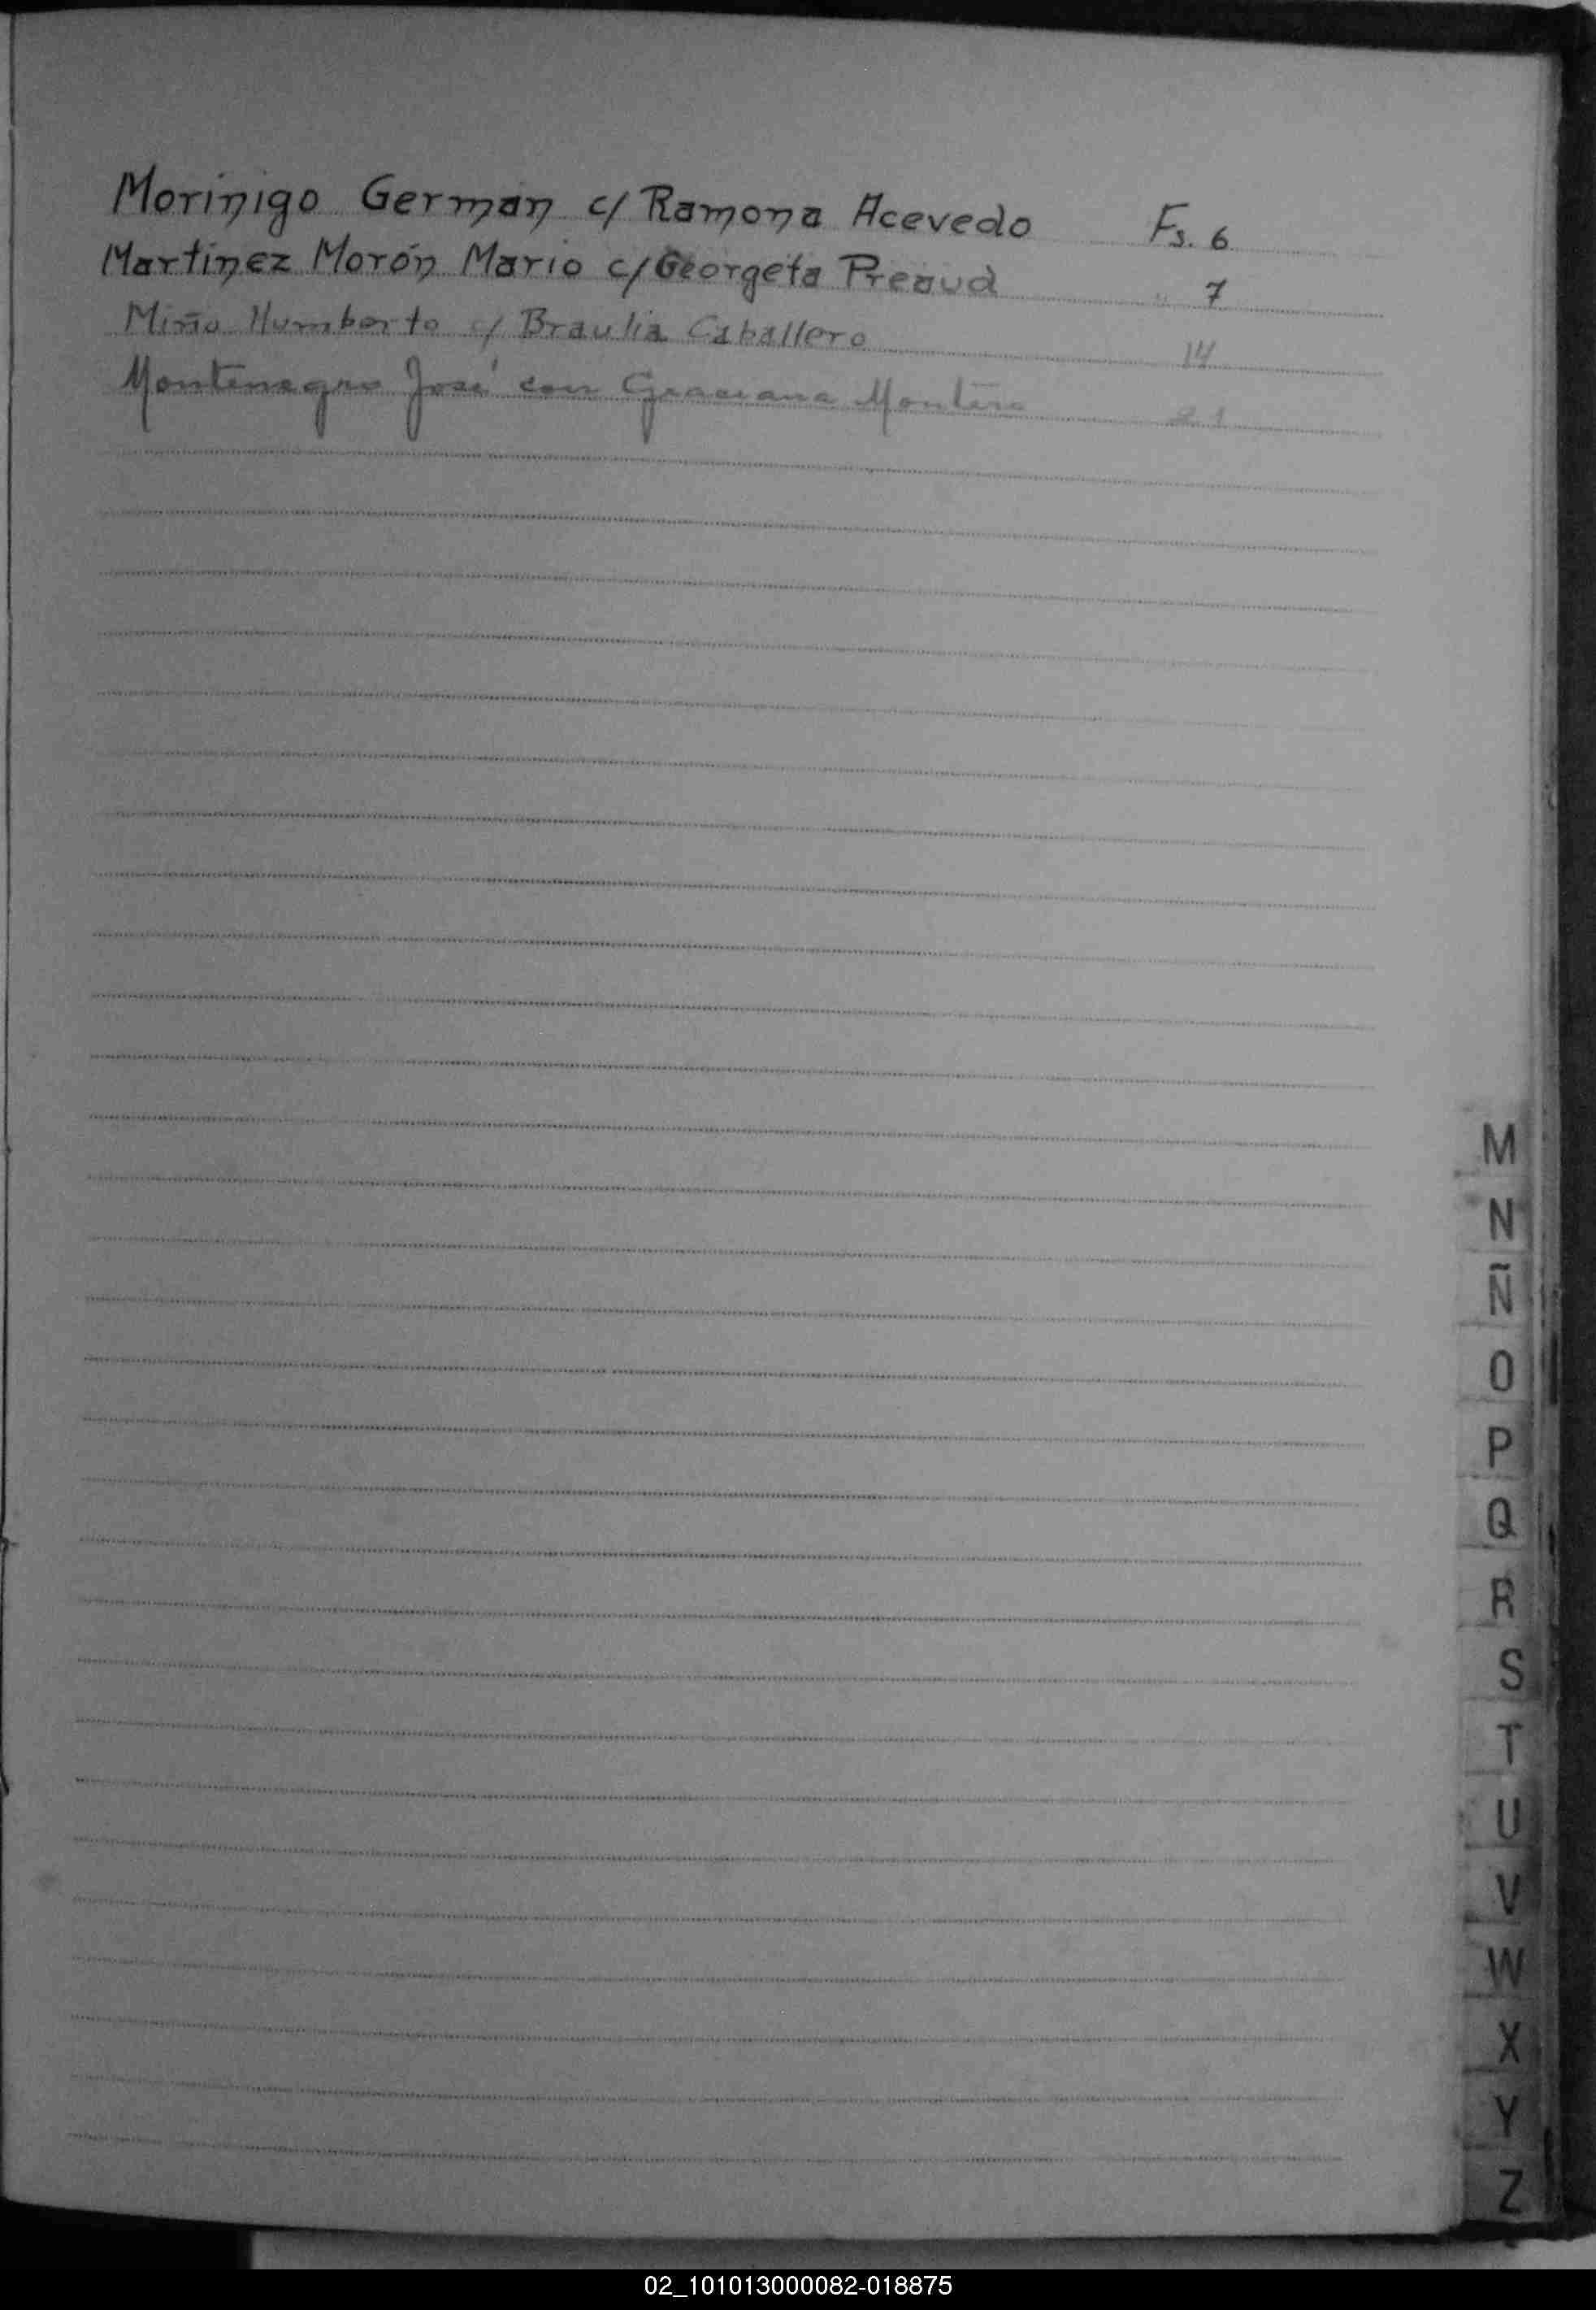 Morinigo German c/ Ramona Acevedo Fs. 6
Martinez Morón Mario c/ Georgeta Preaud " 7
Miño Humberto c/ Braulia Caballero 14
Montenegro José con Graciana Montero 21
M
N
Ñ
O
P
Q
R
S
T
U
V
W
X
Y
Z
02_101013000082-018875